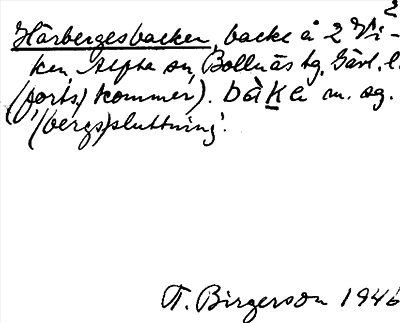 2
Hårbergesbacken, backe å 2 Vi-
ken, Alfta sn, Bollnäs tg, Gävl. l.
(forts. kommer). bàKa m. sg.
'(bergs)sluttning'.
T. Birgerson 1946